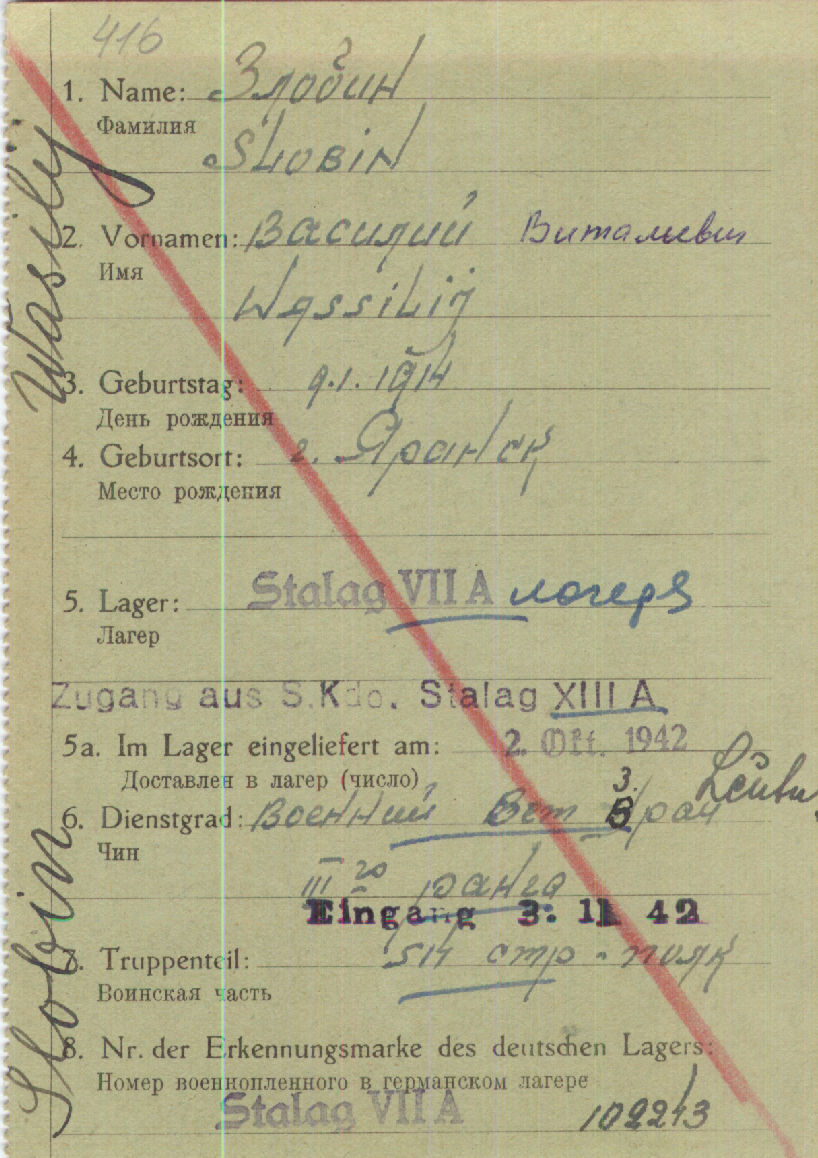 416
1. Name: Злобин
Фамилия
Slobin
2. Vornamen: Василий Витальевич
Имя
Wassilij
3. Geburtstag: 9.1.1914
День рождения
4. Geburtsort: г. Яранск
Место рождения
5. Lager: Stalag VII A
Лагер
Zugang aus S.Kdo. Stalag XIII A
5a. Im Lager eingeliefert am: 2. Okt. 1942
Доставлен в лагер (число)
3.
6. Dienstgrad: Военний Вет Врач
Чин
III го ранга
Eingang 3. 11 42
7. Truppenteil: стр-полк
Воинская часть
8. Nr. der Erkennungsmarke des deutschen Lagers:
Номер военнопленного в германском лагере
Stalag VII A
Wasilij
Slobin